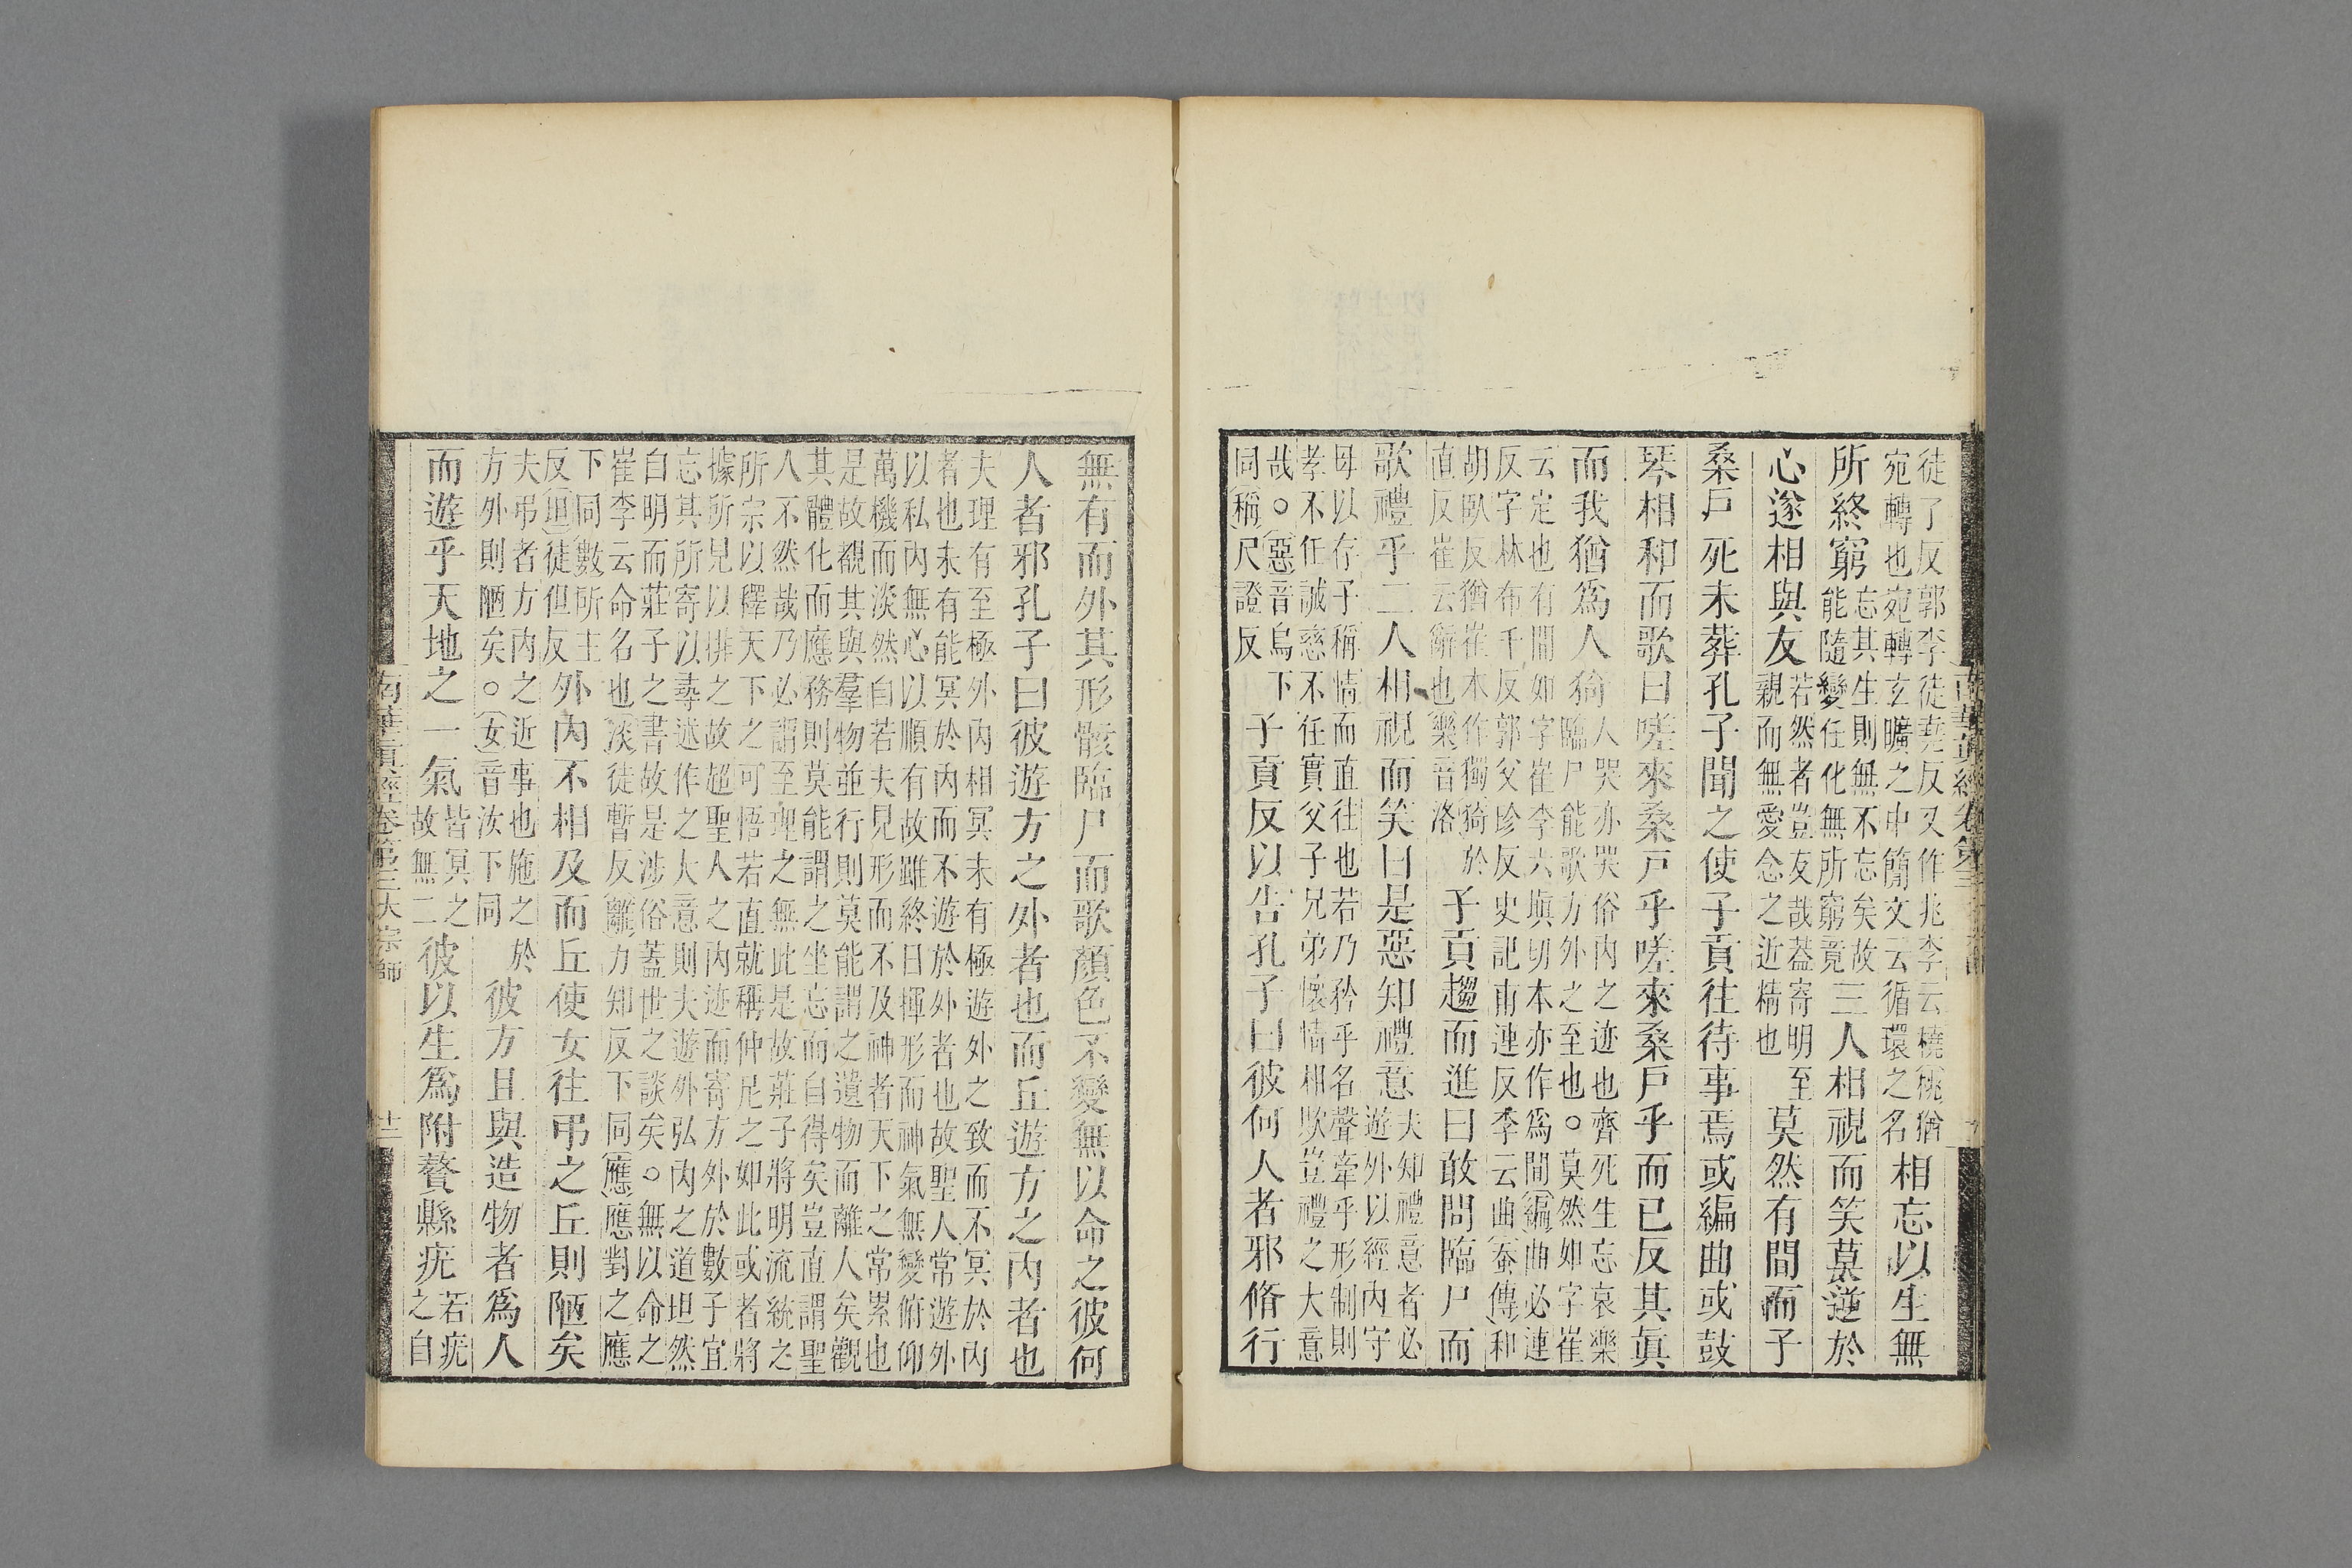 徒了反郭李徒堯反又作兆李云橈挑猶
宛轉也宛轉玄曠之中簡文云循環之名
相忘以生無
所終窮
忘其生則無不忘矣故
能隨變任化無所窮竟
三人相視而笑莫逆於
心遂相與友
若然者豈友哉葢寄明至
親而無愛念之近精也
莫然有間而子
桑戶死未葬孔子聞之使子貢往待事焉或編曲或鼓
琴相和而歌曰嗟來桑戶乎嗟來桑戶乎而已反其眞
而我猶爲人猗
人哭亦哭俗内之迹也齊死生忘哀樂
臨尸能歌方外之至也○莫然如字崔
云定也有間如字崔李六塡切本亦作爲間(編)曲必連
反字林布千反郭父珍反史記甫連反李云曲(蚕傳(和)
胡臥反猗崔本作獨猗於
直反崔云辭也樂音洛
子貢趨而進曰敢問臨尸而
歌禮乎二人相視而笑曰是惡知禮意
夫知禮意者必
遊外以經内守
母以存子稱情而直往也若乃矜乎名聲牽乎形制則
孝不任誠慈不任實父子兄弟懷情相欺豈禮之大意
哉○(惡)音烏下
同(稱)尺證反
子貢反以告孔子曰彼何人者邪脩行
無有而外其形骸臨尸而歌顏色不變無以命之彼何
人者邪孔子曰彼遊方之外者也而丘遊方之内者也
夫理有至極外内相冥未有極遊外之致而不冥於内
者也未有能冥於内而不遊於外者也故聖人常遊外
以私内無心以順有故雖終日揮形而神氣無變俯仰
萬機而淡然自若夫見形而不及神者天下之常累也
是故覩其與羣物並行則莫能謂之遺物而離人矣觀
其體化而應務則莫能謂之坐忘而自得矣豈直謂聖
人不然哉乃必謂至理之無此是故莊子將明流統之
所宗以釋天下之可悟若直就稱仲尼之如此或者將
據所見以排之故超聖人之内迹而寄方外於數子宜
忘其所寄以尋述作之大意則夫遊外弘内之道坦然
自明而莊子之書故是涉俗葢世之談矣○無以命之
崔李云命名也(淡)徒暫反(離)力知反下同(應)應對之應
下同(數)所主
反(坦)徒但反
外内不相及而丘使女往弔之丘則陋矣
夫弔者方内之近事也施之於
方外則陋矣○(女)音汝下同
彼方且與造物者爲人
而遊乎天地之一氣
皆冥之
故無二
彼以生爲附贅縣疣
若疣
之自
南華眞經卷第三大宗師
十二